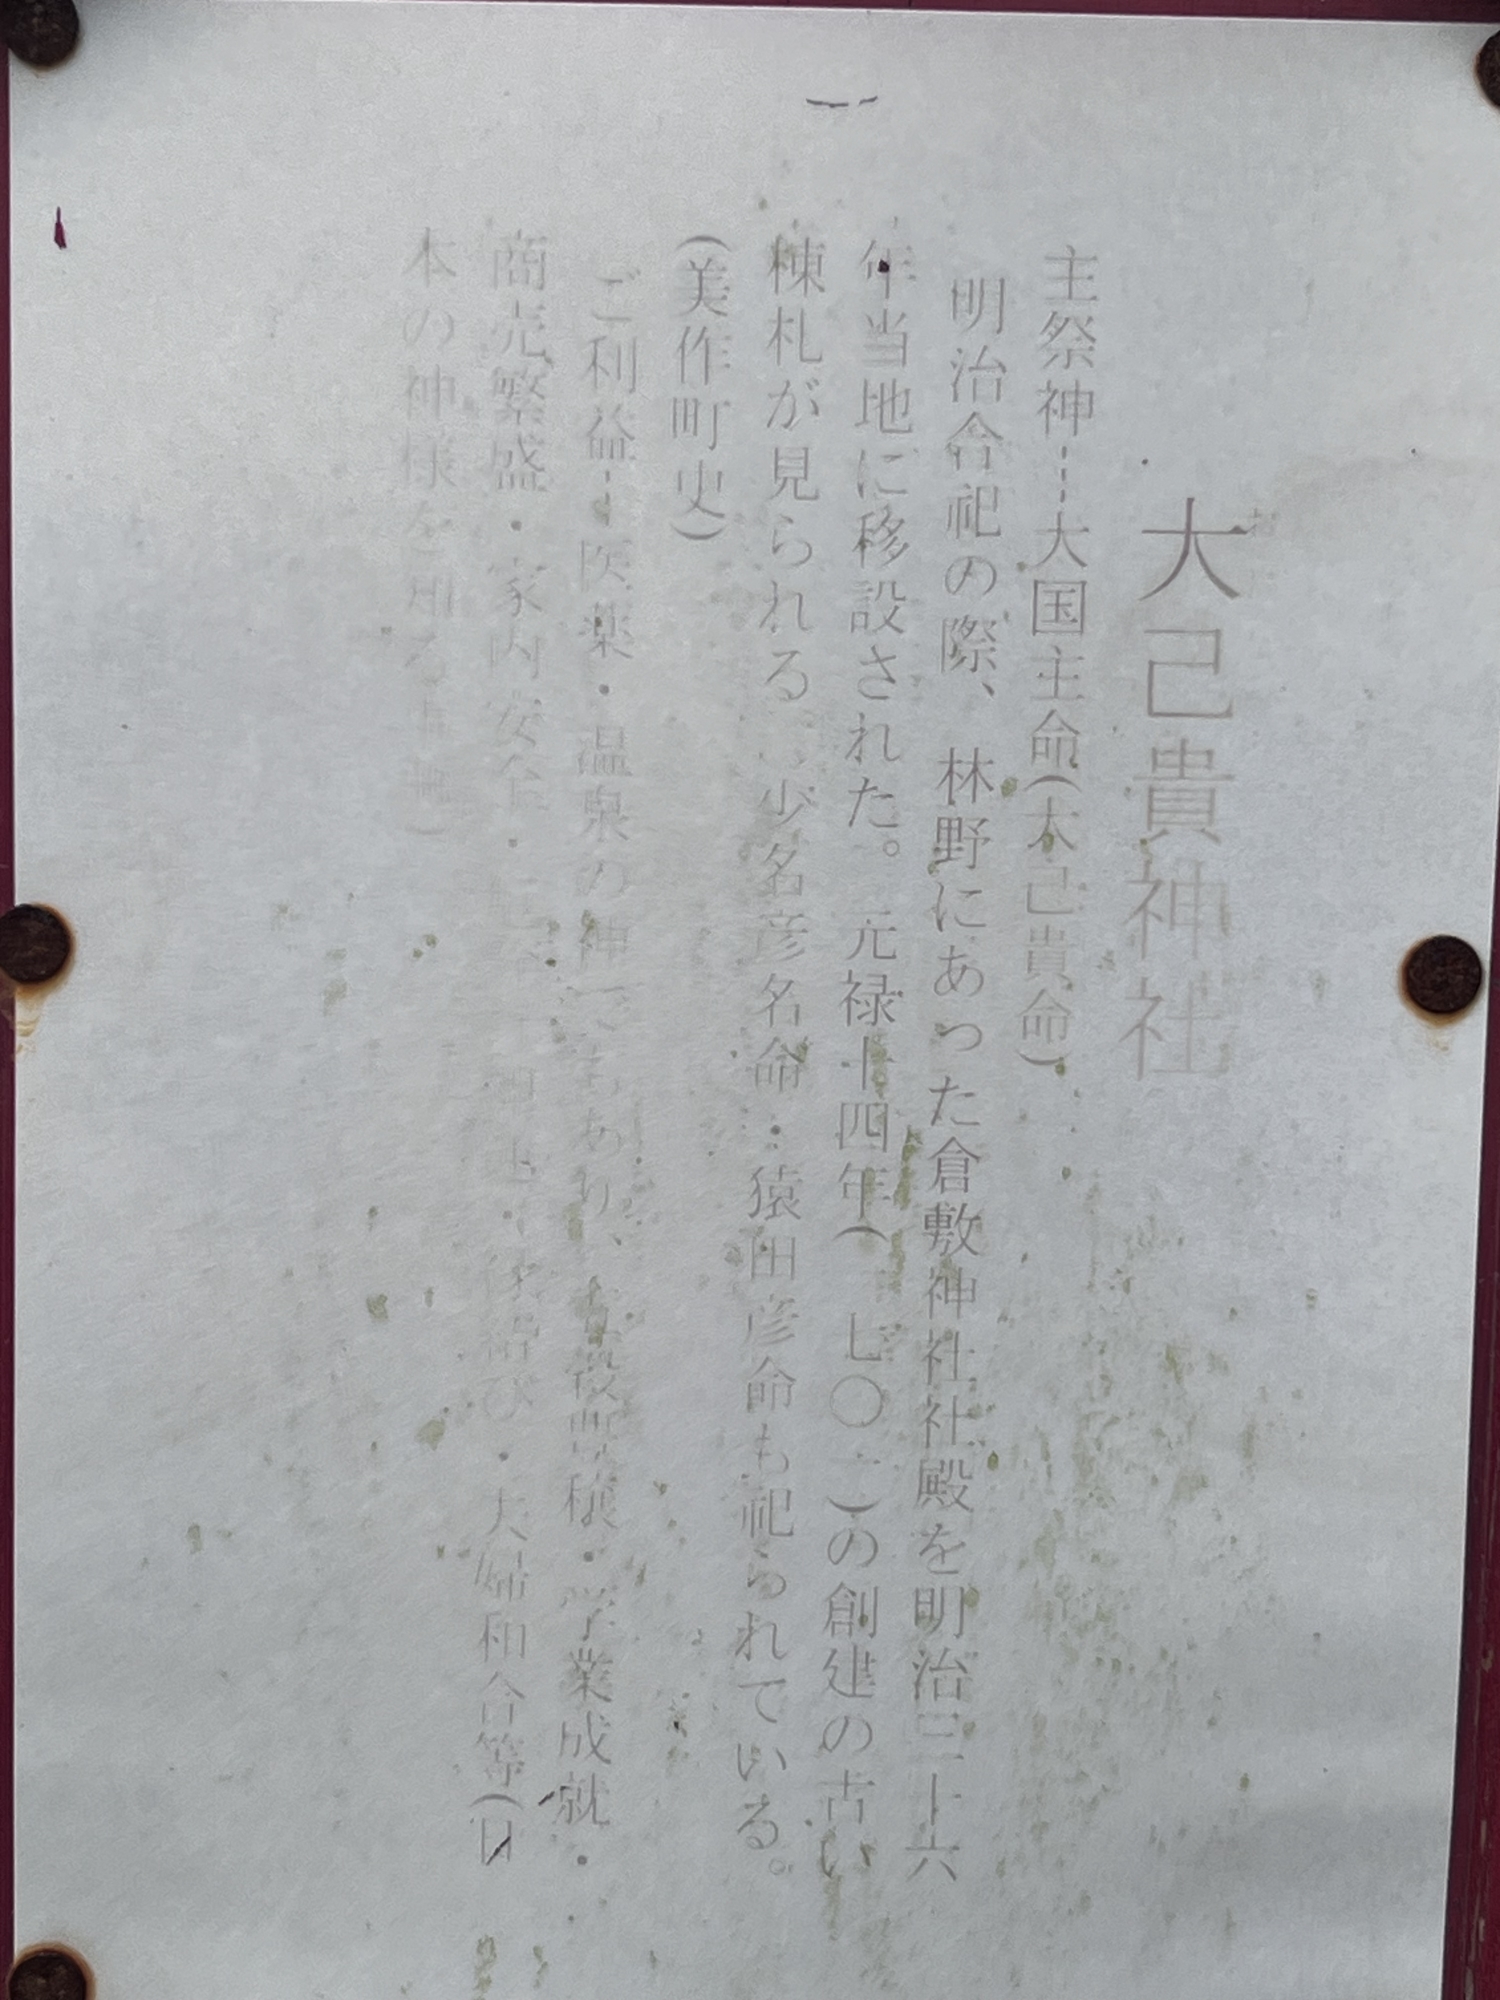 大己貴神社
主祭神…大国主命(大己貴命)
明治合祀の際、林野にあった倉敷神社社殿を明治三十六
年当地に移設された。元禄十四年(一七〇一)の創建の古い
棟札が見られる。少名彦名命…猿田彦命も祀られている。
(美作町史)
ご利益…医薬・温泉の神でもあり、五穀豊穣・学業成就・
商売繁盛・家内安全・縁結び・夫婦和合等(日
本の神様を知る事典)